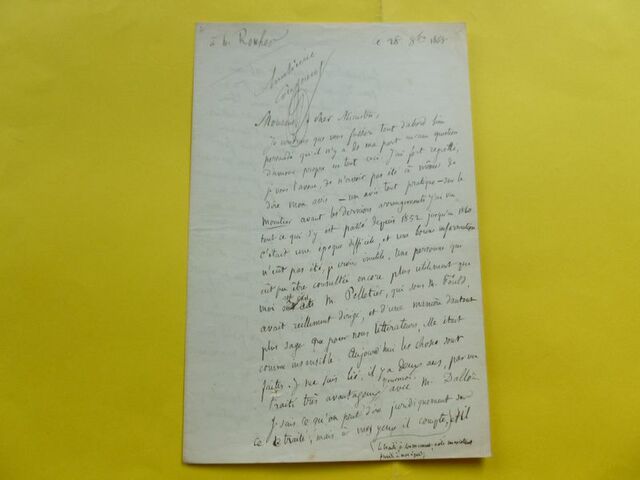 à M. Rouher
ce 28 8bre 1868
Monsieur et cher Ministre,
Je voudrais que vous fussiez tout d'abord bien
persuadé qu'il n'y a de ma part aucune question
d'amour propre en tout ceci. J'ai fort regretté,
je vous l'avoue, de n'avoir pas été à même de
dire mon avis – un avis tout pratique – sur le
Moniteur avant les derniers arrangements. J'ai vu
tout ce qui s'y est passé depuis 1852 jusqu'en 1860
c'était une époque difficile, et une bonne information
n'eût pas été, je crois, inutile. Une personne qui
eût pu être consultée encore plus utilement que
moi est M. Pelletier, qui sous M. Fould,
avait réellement dirigé, et d'une manière d'autant
plus sage que pour nous littérateurs, elle était
comme insensible. Aujourd'hui les choses sont
faites. Je me suis lié, il y a deux ans, par un
traité très avantageux pour moi avec M. Dalloz.
Je sais ce qu'on peut dire juridiquement sur
ce traité; mais à mes yeux il compte, et il